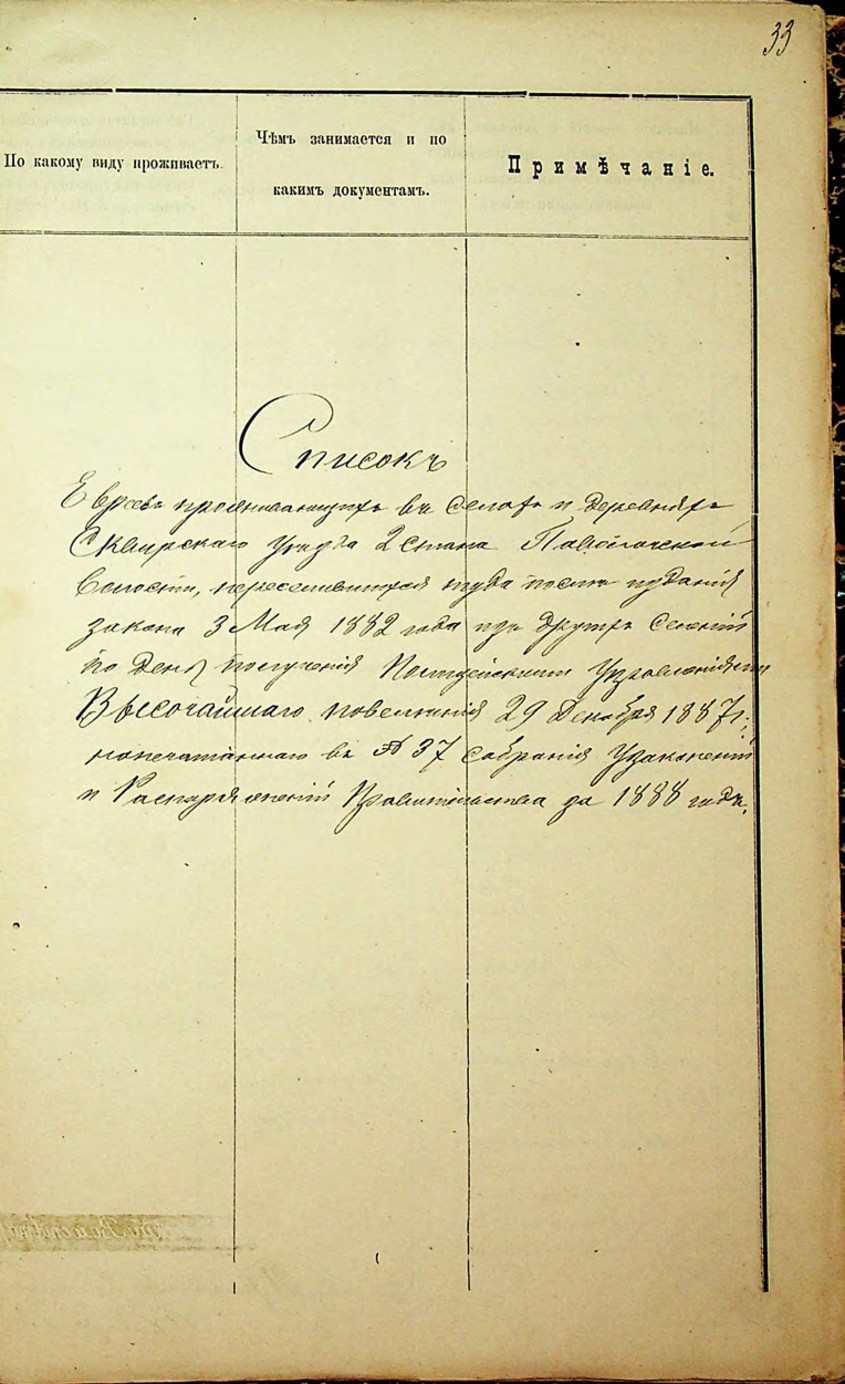 33
По какому виду проживаетъ.
Чѣмъ занимается и по
какимъ документамъ.
Примѣчаніе.
Списокъ
Евреевъ проживающихъ въ селахъ и деревняхъ
Сквирскаго уѣзда 2 стана Паволочской
волости, переселившихся туда послѣ изданія
закона 3 Мая 1882 года изъ другихъ селеній
по день полученія Полицейскимъ Управленіемъ
Высочайшаго повелѣнія 29 Декабря 1887 г.,
напечатаннаго въ № 37 собранія Узаконеній
и Распоряженій Правительства за 1888 годъ.